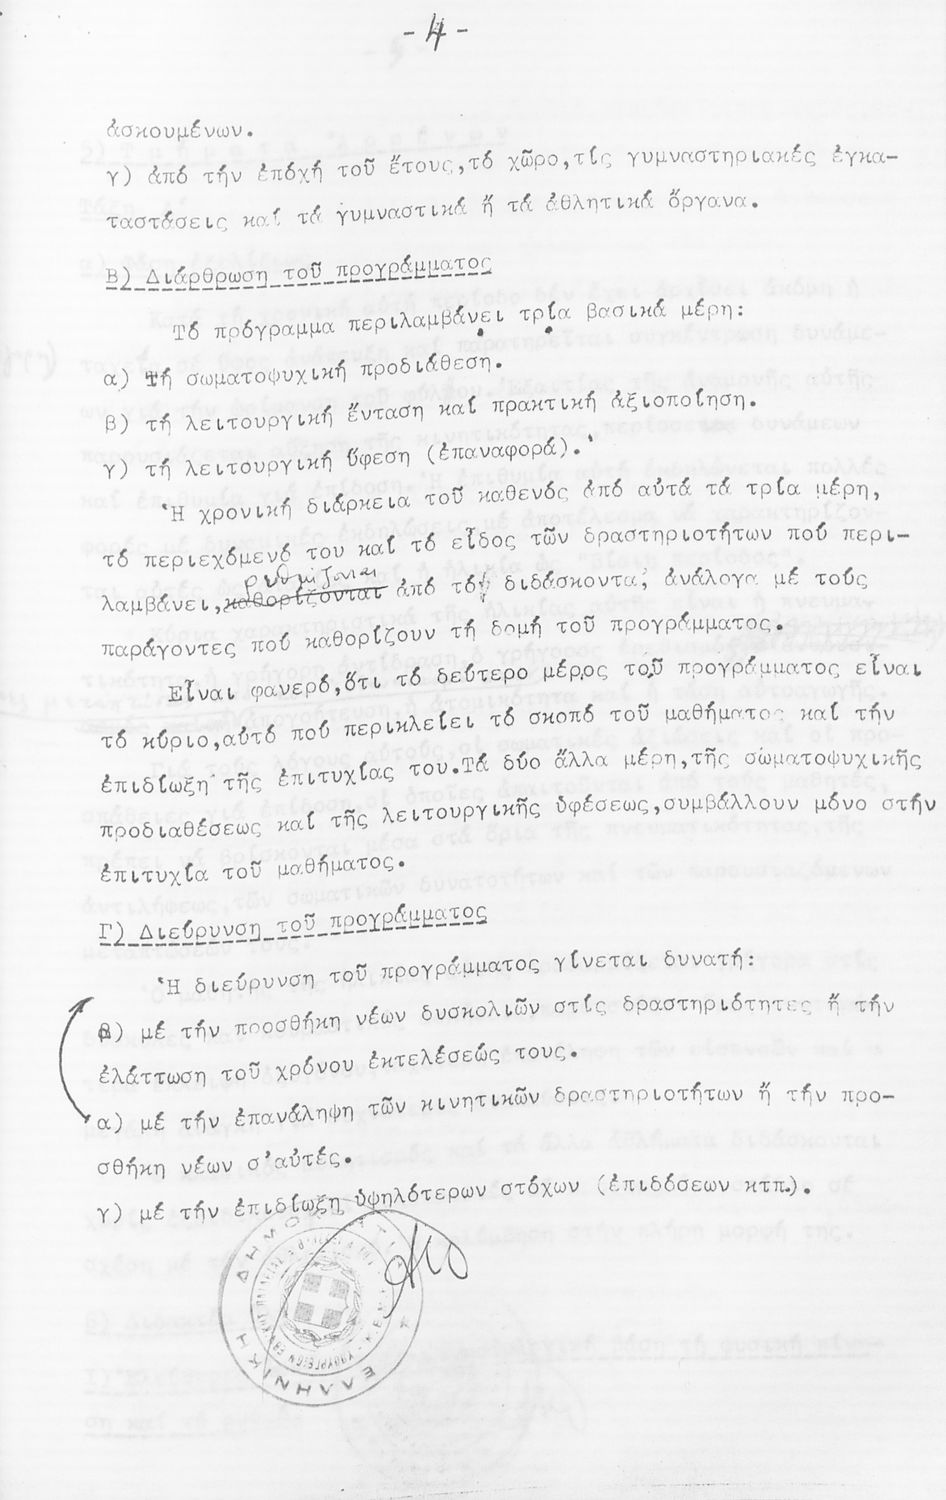 -4-
ἀσκουμένων.
γ) ἀπό τήν ἐποχή τοῦ ἔτους,τό χῶρο,τίς γυμναστηριακές ἐγκα-
ταστάσεις καί τά γυμναστικά ἤ τά ἀθλητικά ὄργανα.
Β) Διάρθρωση τοῦ προγράμματος
Τό πρόγραμμα περιλαμβάνει τρία βασικά μέρη:
α) τή σωματοψυχική προδιάθεση.
β) τή λειτουργική ἔνταση καί πρακτική ἀξιοποίηση.
γ) τή λειτουργική ὕφεση (ἐπαναφορά).
Ἡ χρονική διάρκεια τοῦ καθενός ἀπό αὐτά τά τρία μέρη,
τό περιεχόμενό του καί τό εἶδος τῶν δραστηριοτήτων πού περι-
ρυθμίζονται
λαμβάνει,καθορίζονται ἀπό τό διδάσκοντα, ἀνάλογα μέ τούς
παράγοντες πού καθορίζουν τή δομή τοῦ προγράμματος.
Εἶναι φανερό,ὅτι τό δεύτερο μέρος τοῦ προγράμματος εἶναι
τό κύριο,αὐτό πού περικλείει τό σκοπό τοῦ μαθήματος καί τήν
ἐπιδίωξη τῆς ἐπιτυχίας του.Τά δύο ἄλλα μέρη,τῆς σωματοψυχικῆς
προδιαθέσεως καί τῆς λειτουργικῆς ὑφέσεως,συμβάλλουν μόνο στήν
ἐπιτυχία τοῦ μαθήματος.
Γ) Διεύρυνση τοῦ προγράμματος
Ἡ διεύρυνση τοῦ προγράμματος γίνεται δυνατή:
β) μέ τήν προσθήκη νέων δυσκολιῶν στίς δραστηριότητες ἤ τήν
ἐλάττωση τοῦ χρόνου ἐκτελέσεώς τους.
α) μέ τήν ἐπανάληψη τῶν κινητικῶν δραστηριοτήτων ἤ τήν προ-
σθήκη νέων σ'αὐτές.
γ) μέ τήν ἐπιδίωξη ὑψηλότερων στόχων (ἐπιδόσεων κτπ.).
ΕΛΛΗΝΙΚΗ